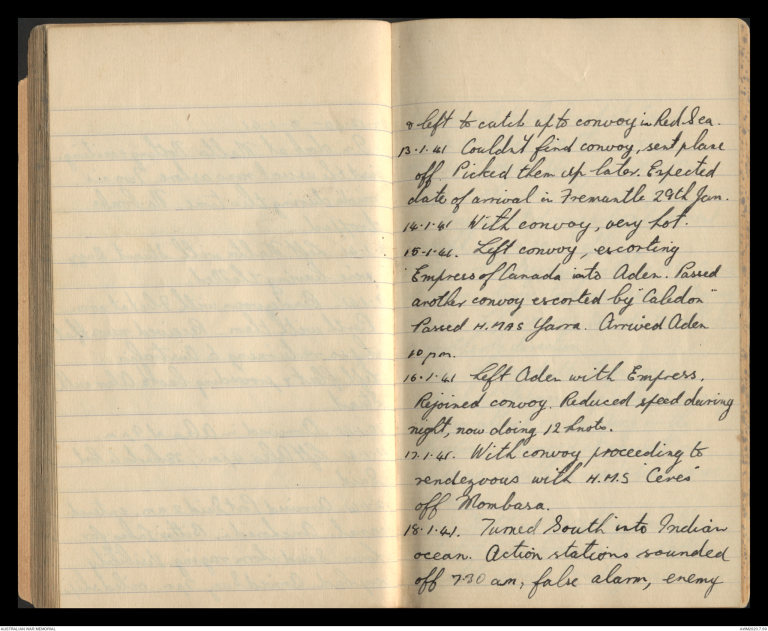 & left to catch up to convoy in Red Sea.
13.1.41 Couldn't find convoy, sent plane
off. Picked them up later. Expected
date of arrival in Fremantle 29th Jan.
14.1.41 With convoy, very hot.
15.1.41. Left convoy, escorting
Empress of Canada into Aden. Passed
another convoy escorted by "Caledon"
Passed H.MAS Yarra. Arrived Aden
10 pm.
16.1.41 Left Aden with Empress.
Rejoined convoy. Reduced speed during
night, now doing 12 knots.
17.1.41. With convoy proceeding to
rendezvous with H.M.S "Ceres"
off Mombasa.
18.1.41. Turned South into Indian
ocean. Action stations sounded
off 7.30 am, false alarm, enemy
AUSTRALIAN WAR MEMORIAL